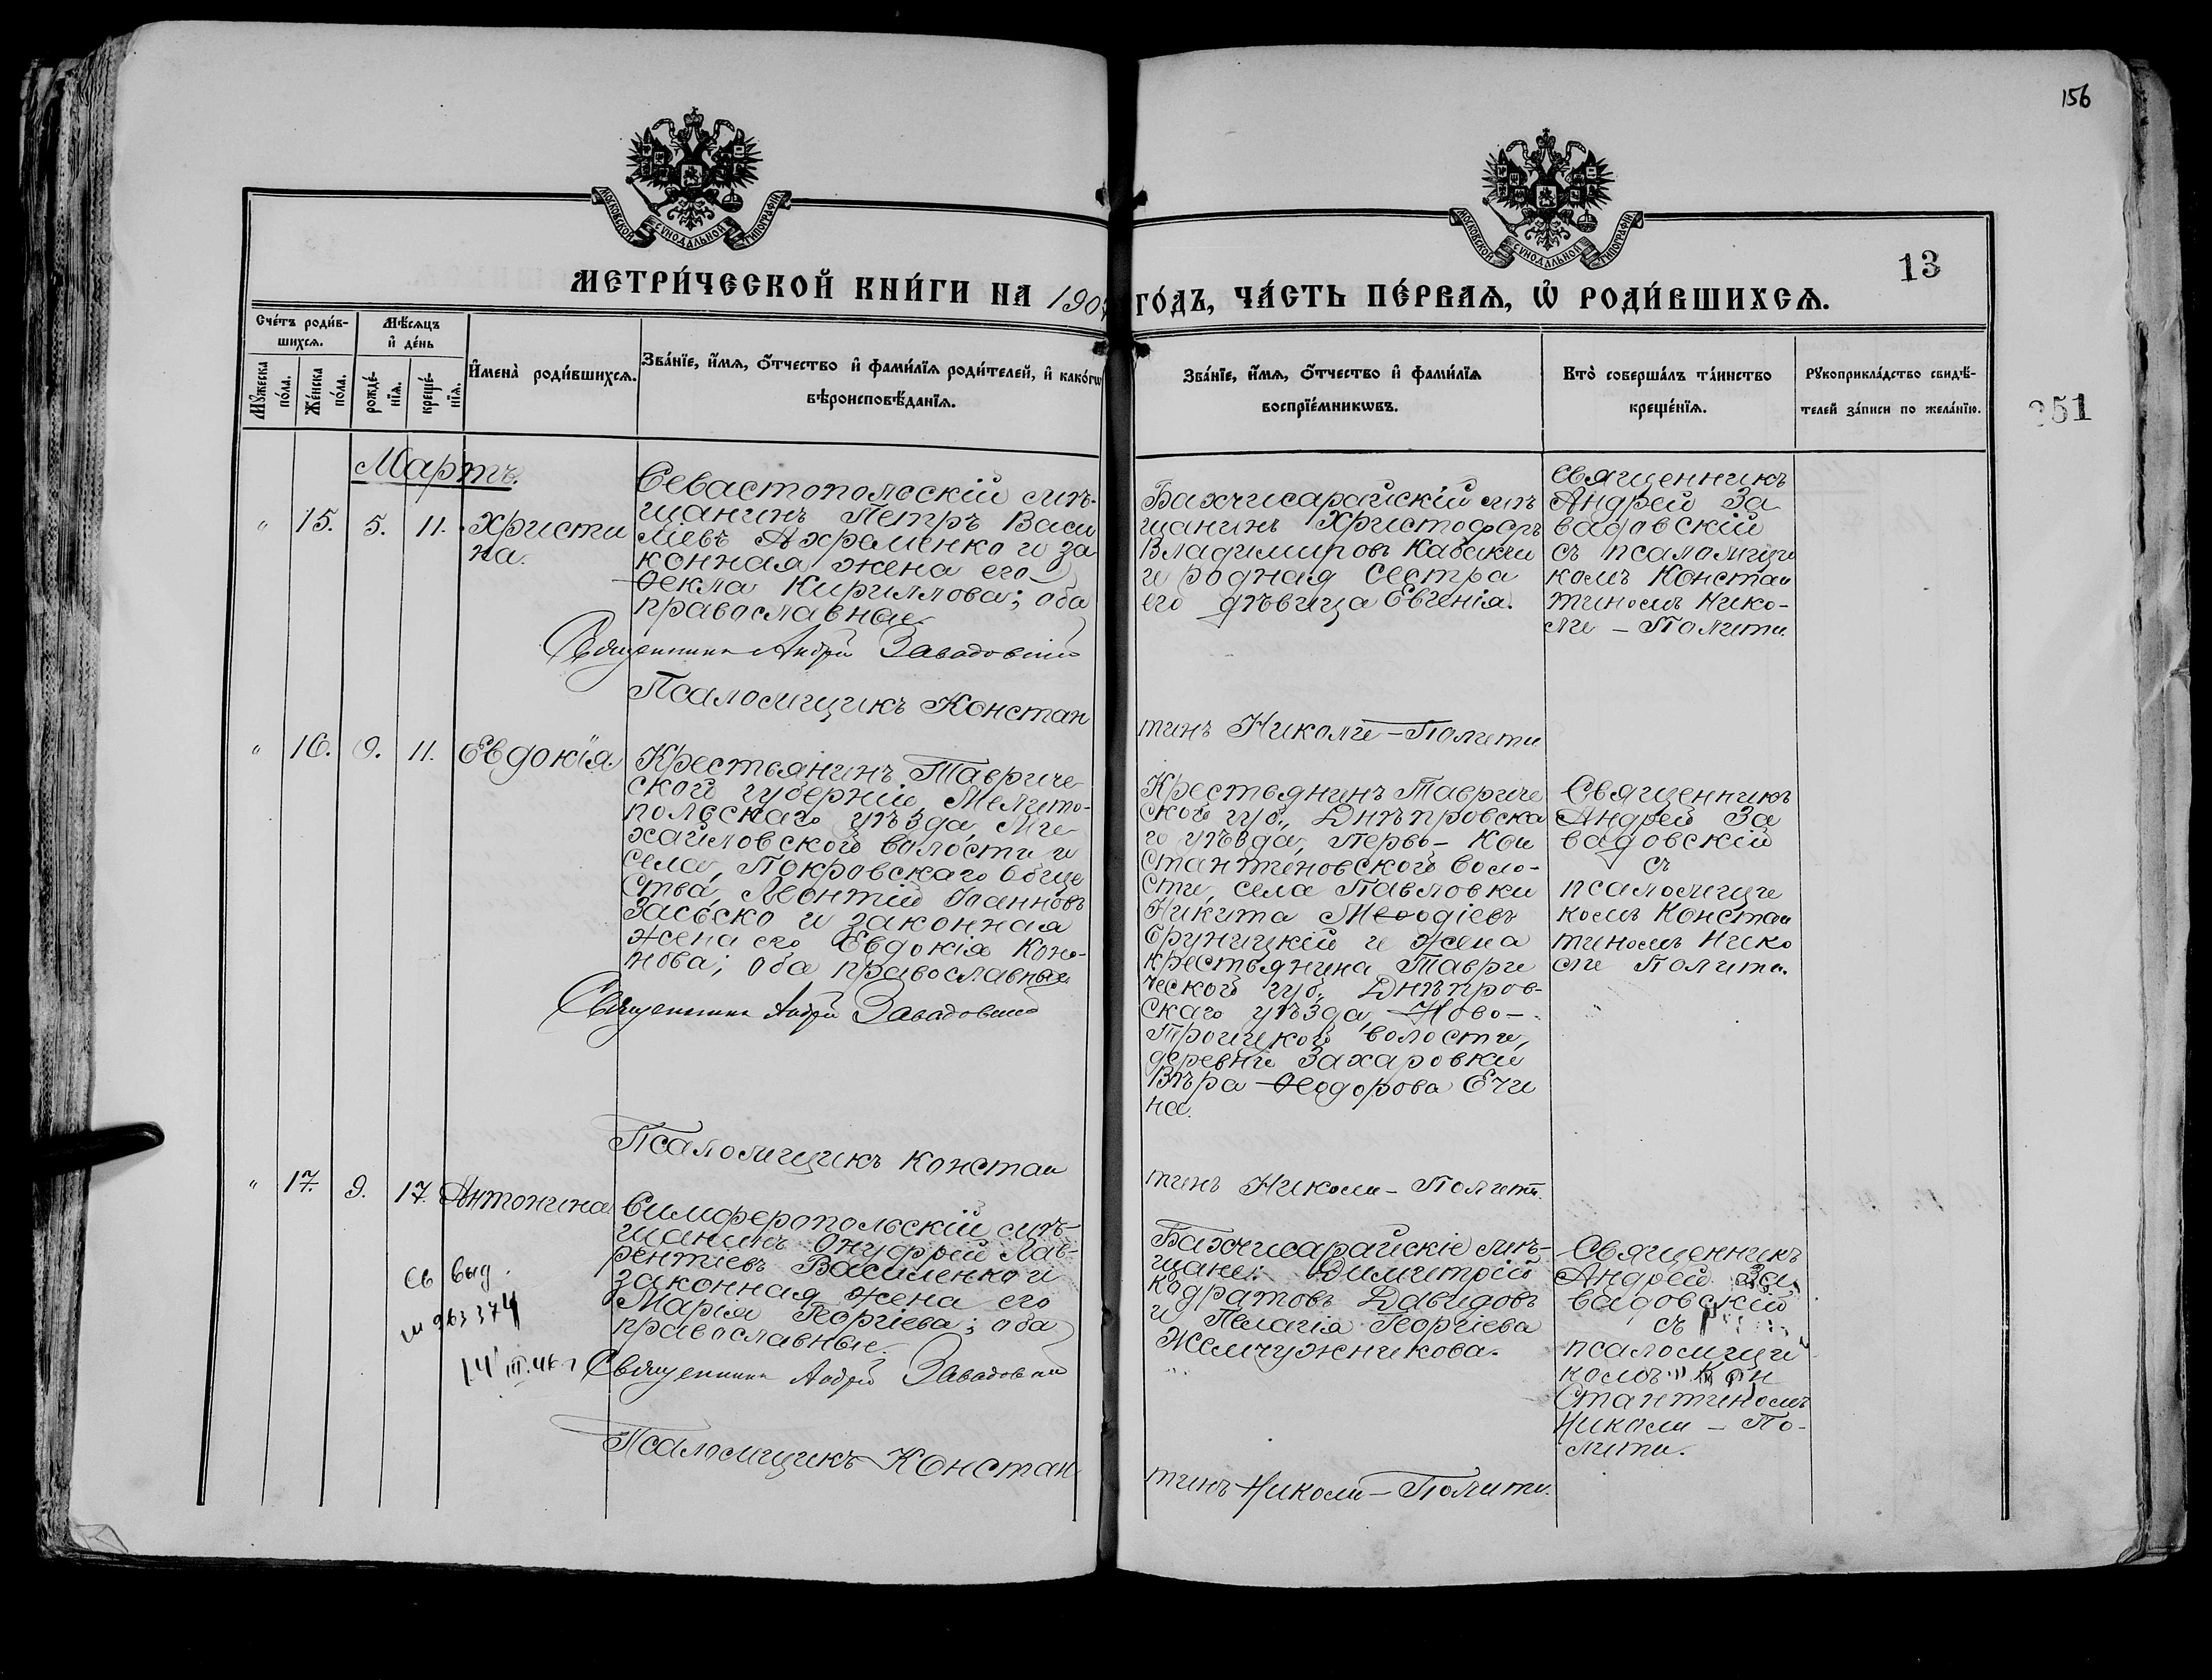 156
МОСКОВСКОЙ СѴНОДАЛЬНОЙ ТИПОГРАФІИ
МОСКОВСКОЙ СѴНОДАЛЬНОЙ ТИПОГРАФІИ
13
МЕТРИ́ЧЕСКОЙ КНИ́ГИ НА 190 ГО́ДЪ, ЧА́СТЬ ПЕ́РВАѦ, Ѡ҆ РОДИ́ВШИХСѦ.
Сче́тъ роди́в-
шихсѧ.
Мѣ́сѧцъ
и҆ де́нь
Мꙋ́жеска
по́ла.
Же́нска
по́ла.
рожде́-
нїѧ.
креще́-
нїѧ.
И҆мена̀ роди́вшихсѧ.
Зва́нїе, и҆́мѧ, ѻ҆́тчество и҆ фами́лїѧ роди́телей, и҆ како́гѡ
вѣроисповѣ́данїѧ.
Зва́нїе, и҆́мѧ, ѻ҆́тчество и҆ фами́лїѧ
воспрїе́мникѡвъ.
Кто̀ соверша́лъ та́инство
креще́нїѧ.
Рꙋкоприкла́дство свидѣ́-
телей за́писи по жела́нїю.
351
Мартъ.
" 15. 5. 11. Христи
на.
Севастопольскій мѣ-
щанинъ Петръ Васи
ліевъ Ахременко и за
конная жена его
Ѳекла Кириллова; оба
православные.
Священникъ Андрей Завадовскій
Псаломщикъ Констан
Бахчисарайскій мѣ
щанинъ Христофоръ
Владимировъ Кабакчи
и родная сестра
его дѣвица Евгенія.
Священникъ
Андрей За
вадовскій
съ псаломщи
комъ Констан
тиномъ Нико-
ли - Полити.
тинъ Николи - Полити
" 16. 9. 11. Евдокія
Крестьянинъ Тавриче
ской губерніи, Мелито-
польскаго уѣзда, Ми
хайловской волости и
села, Покровскаго обще
ства, Леонтій Іоанновъ
Засьско и законная
жена его Евдокія Коно-
нова; оба православные.
Священникъ Андрей Завадовскій
Псаломщикъ Констан
Крестьянинъ Тавриче
ской губ., Днѣпровска
го уѣзда, Перво - Кон
стантиновской воло-
сти, села Павловки
Никита Меѳодіевъ
Бруницкій и жена
крестьянина Таври
ческой губ., Днѣпров-
скаго уѣзда, Ново -
Троицкой волости,
деревни Захаровки
Вѣра Ѳеодорова Ечи
на.
Священникъ
Андрей За
вадовскій
съ
псаломщи
комъ Констан
тиномъ Нико
ли Полити.
тинъ Николи - Полити.
" 17. 9. 17. Антонина
Симферопольскій мѣ-
щанинъ Онуфрій Лав-
рентіевъ Василенко и
законная жена его
Марія Георгіева; оба
православные.
Св выд.
14 III. 46 г
Священникъ Андрей Завадовскій
Псаломщикъ Констан
Бахчисарайскіе мѣ-
щане: Димитрій
Кодратовъ Давидовъ
и Пелагія Георгіева
Жемчужникова.
Священникъ
Андрей За
вадовскій
съ
псаломщи
комъ Кон
стантиномъ
Николи - По-
лити.
тинъ Николи - Полити.